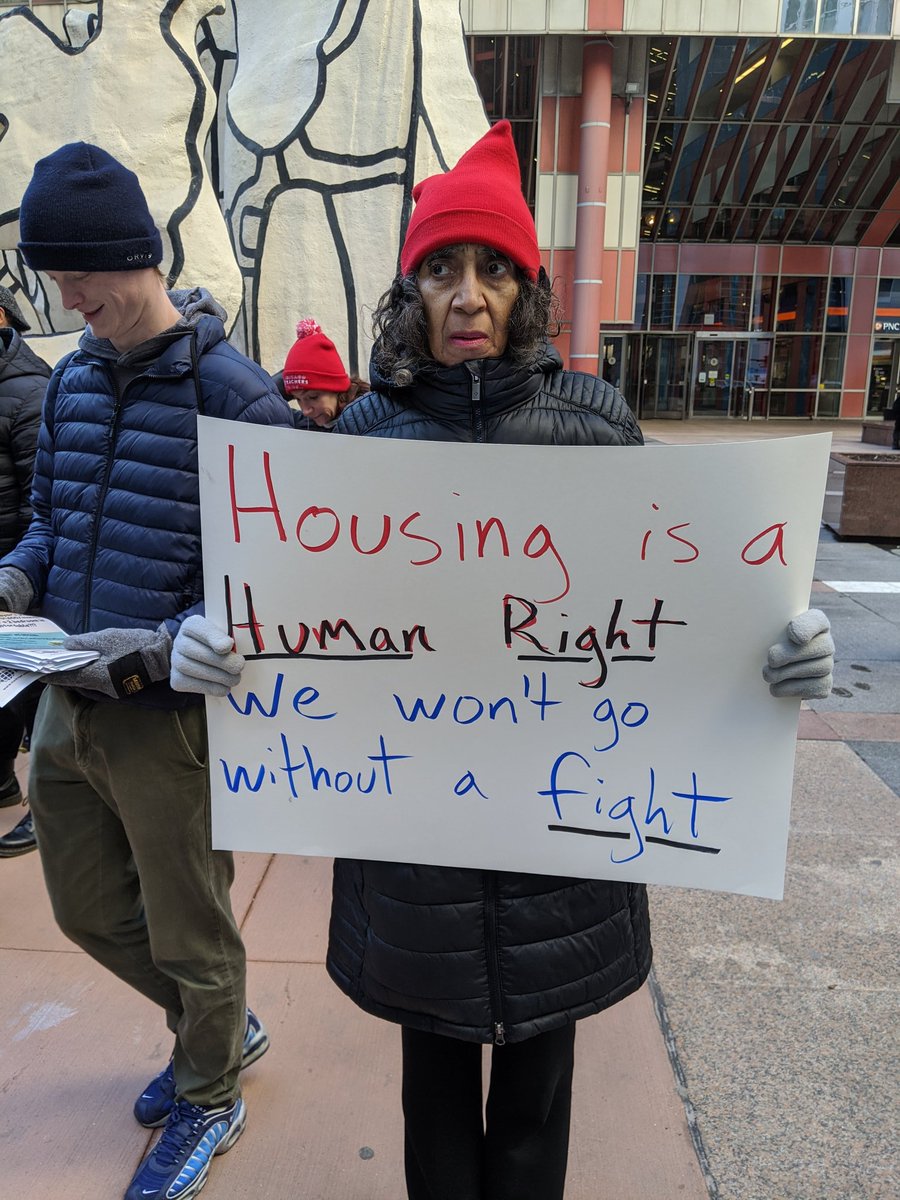 ORVIS
TEACHERS
PNC
Housing is a
Human Right
We won't go
without a fight